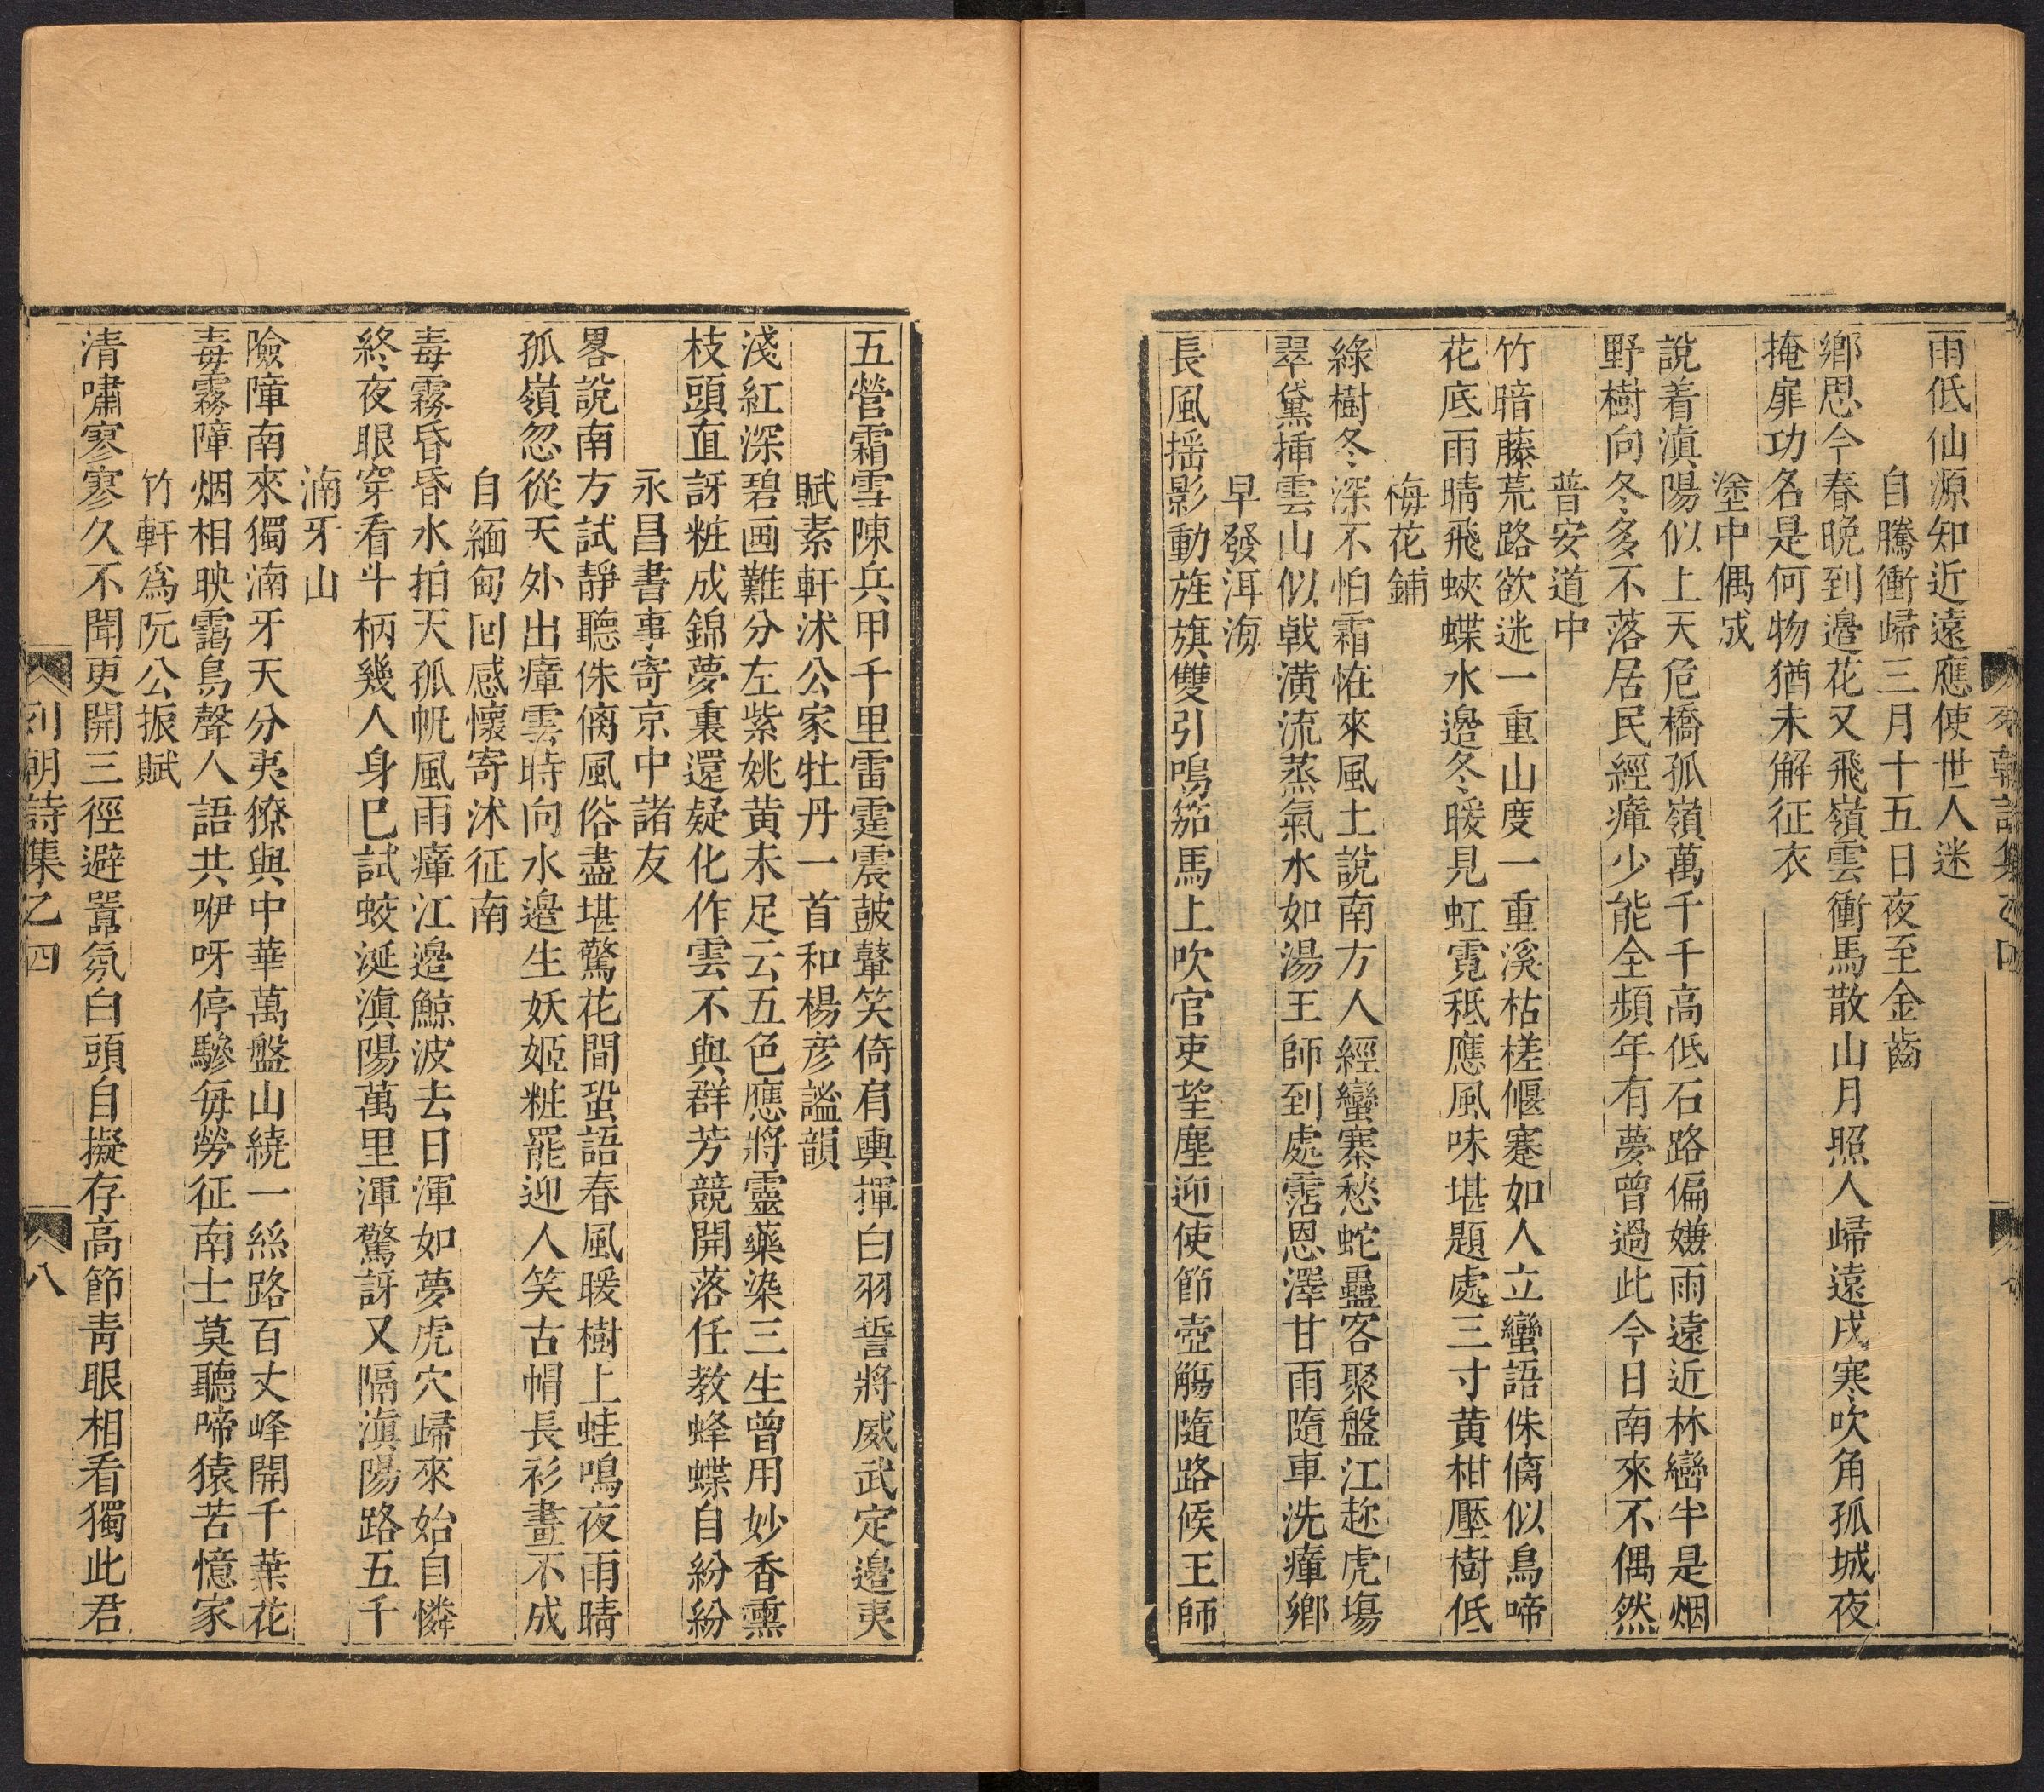 雨低仙源知近遠應使世人迷
自騰衝歸三月十五日夜至金齒
鄉思今春晚到邉花又飛嶺雲衝馬散山月照人歸遠戍寒吹角孤城夜
掩扉功名是何物猶未解征衣
塗中偶成
說着滇陽似上天危橋孤嶺萬千千高低石路偏嫌雨遠近林巒半是烟
野樹向冬多不落居民經瘴少能全頻年有夢曾過此今日南來不偶然
普安道中
竹暗藤荒路欲迷一重山度一重溪枯槎偃蹇如人立蠻語侏㒧似鳥啼
花底雨晴飛蛺蝶水邉冬暖見虹霓秪應風味堪題處三寸黃柑壓樹低
梅花鋪
綠樹冬深不怕霜恠來風土說南方人經蠻寨愁蛇蠱客聚盤江趂虎塲
翠黛揷雲山似戟潢流蒸氣水如湯王師到處霑恩澤甘雨隨車洗瘴鄉
早發洱海
長風揺影動旌旗雙引鳴笳馬上吹官吏望塵迎使節壺觴隨路候王師
五營霜雪陳兵甲千里雷霆震皷鼙笑倚肩輿揮白羽誓將威武定邉夷
賦素軒沭公家牡丹一首和楊彦謐韻
淺紅深碧画難分左紫姚黄未足云五色應將靈藥染三生曾用妙香熏
枝頭直訝粧成錦夢裏還疑化作雲不與群芳競開落任教蜂蝶自紛紛
永昌書事寄京中諸友
畧說南方試靜聽侏㒧風俗盡堪驚花間蛩語春風暖樹上蛙鳴夜雨晴
孤嶺忽從天外出瘴雲時向水邉生妖姬粧罷迎人笑古帽長衫畫不成
自緬甸囘感懷寄沭征南
毒霧昏昏水拍天孤帆風雨瘴江邉鯨波去日渾如夢虎穴歸來始自憐
終夜眼穿看斗柄幾人身巳試蛟涎滇陽萬里渾驚訝又隔滇陽路五千
湳牙山
險障南來獨湳牙天分夷獠與中華萬盤山繞一絲路百丈峰開千葉花
毒霧障烟相映靄鳥聲人語共咿呀停驂每勞征南士莫聽啼猿苦憶家
竹軒爲阮公振賦
清嘯寥寥久不聞更開三徑避嚻氛白頭自擬存高節靑眼相看獨此君
列朝詩集乙四
八